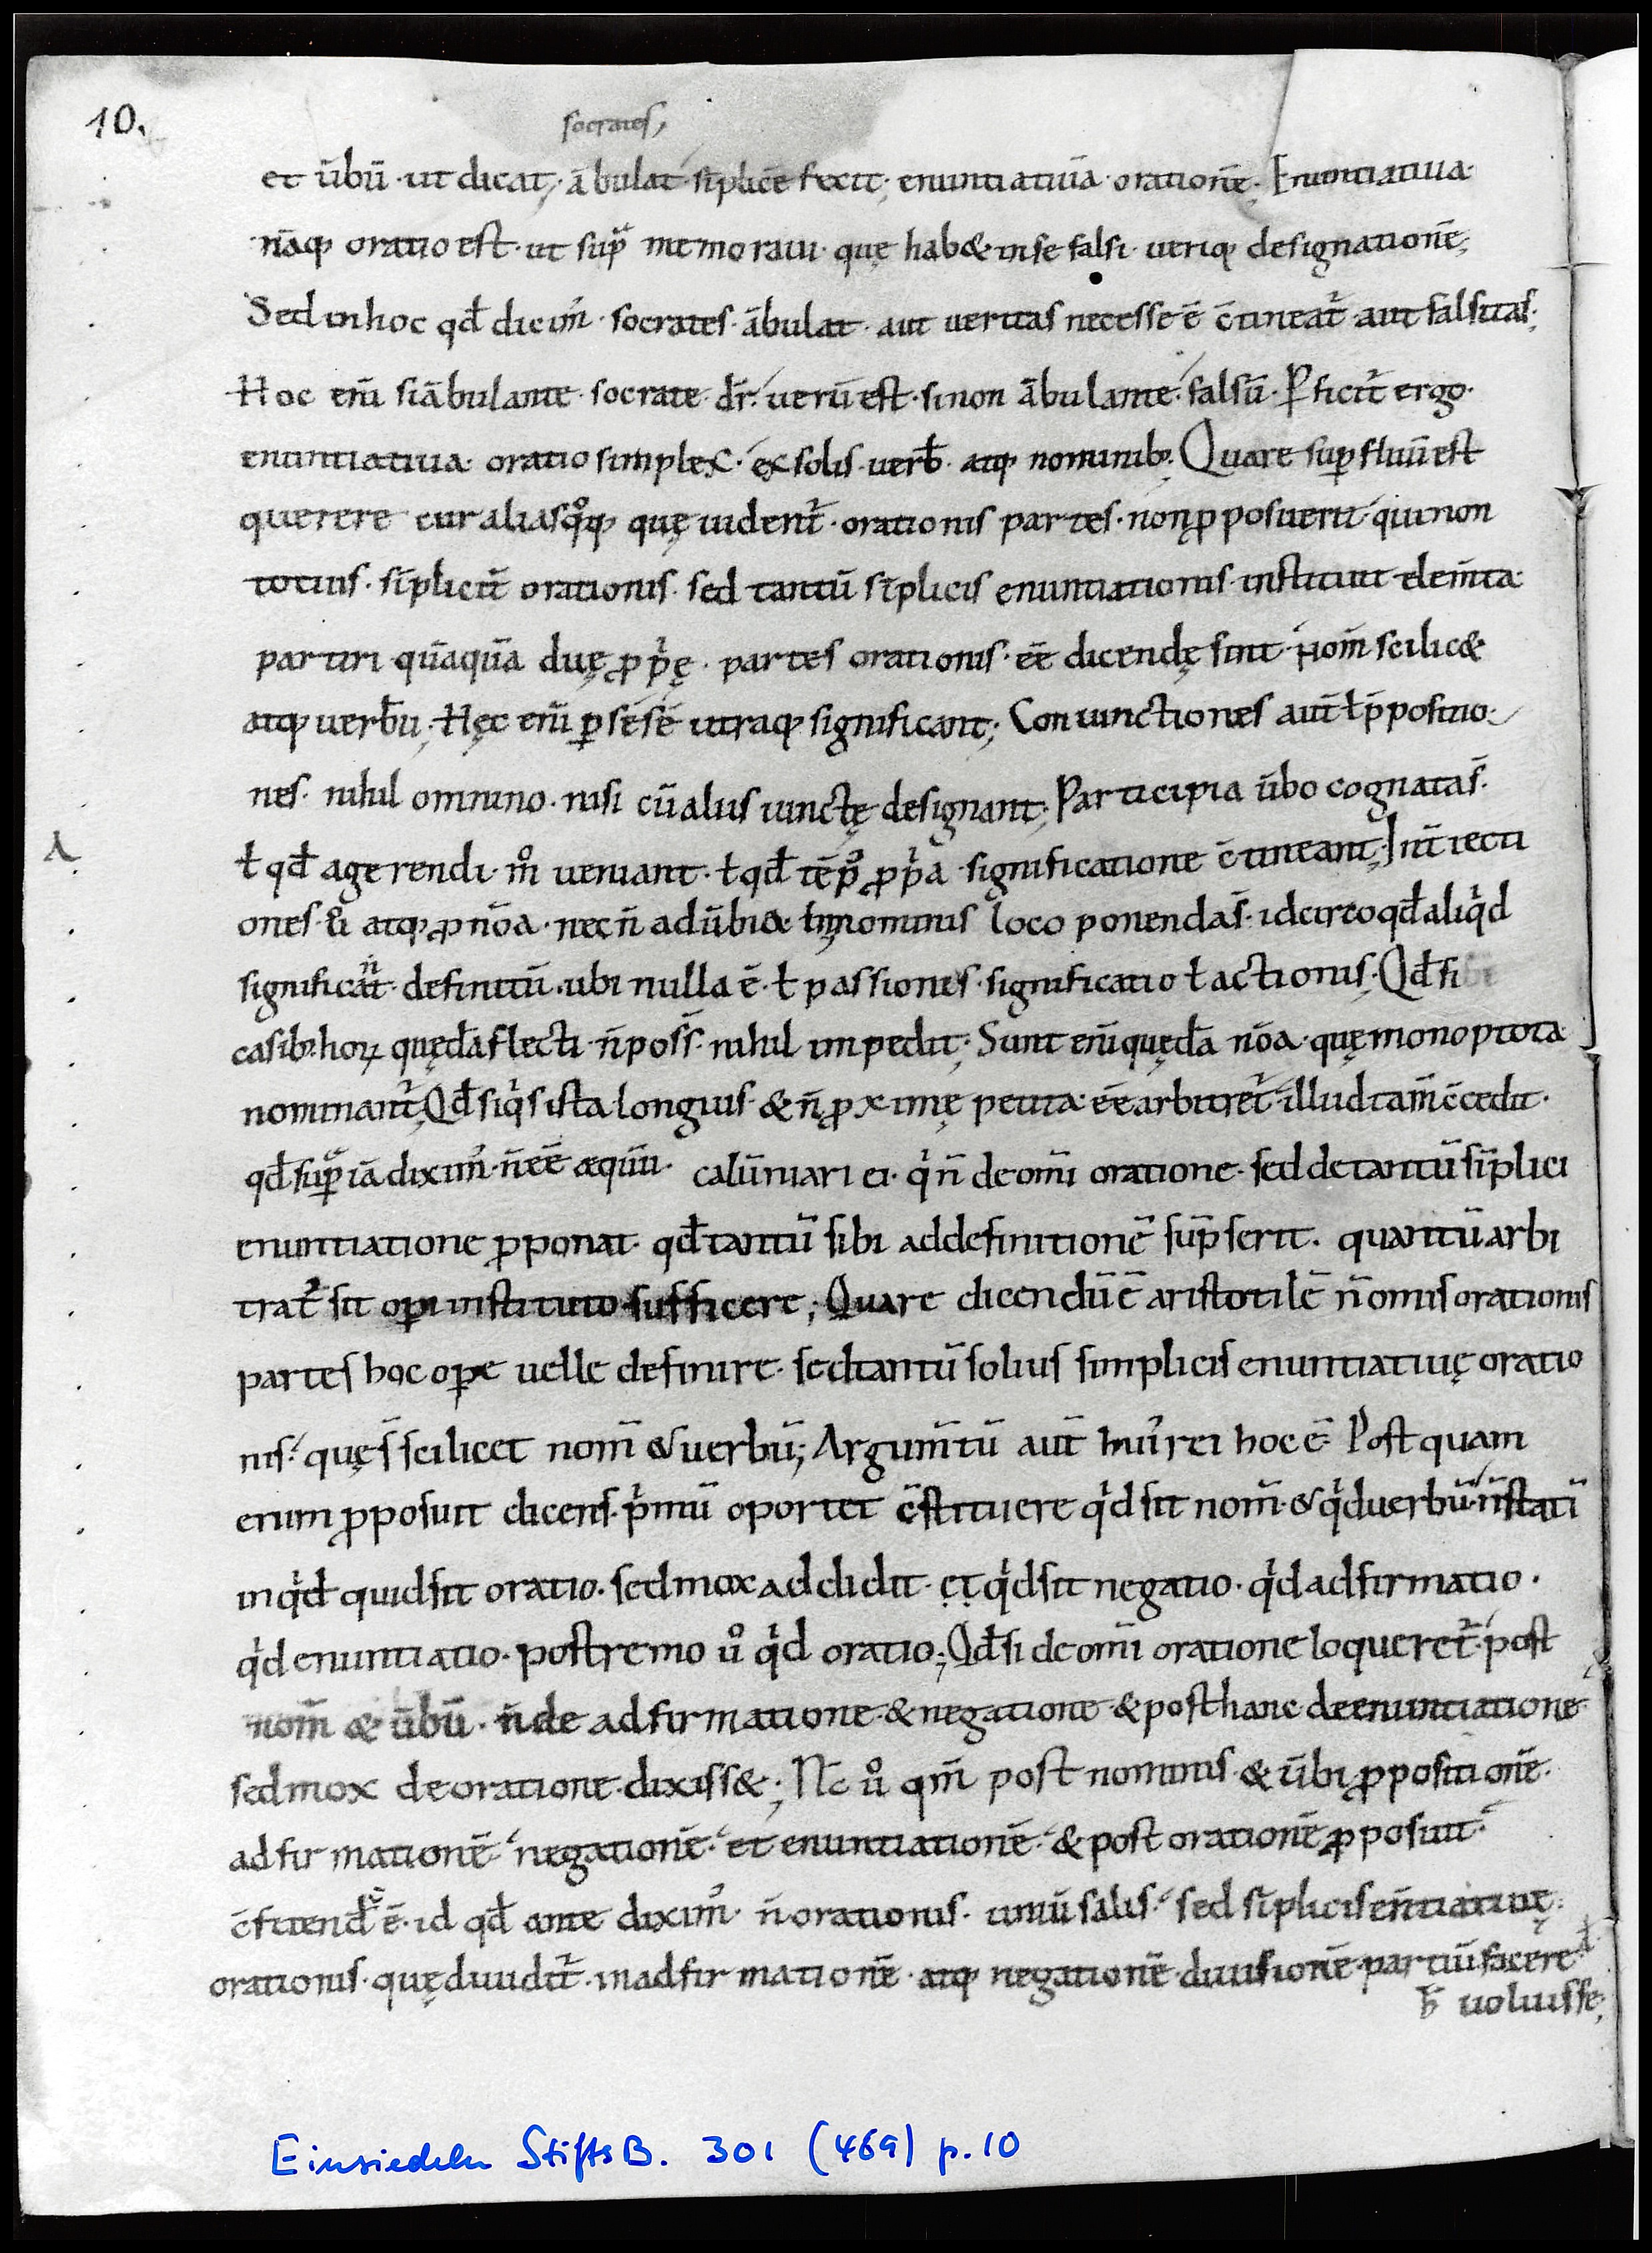 10.
socrates,
et ūbū · ut dicat; ābulat · sīplicē fecit; enuntiatiuā · orationē. Enuntiatiua
nāq; oratio est · ut supᵃ memoraui · quę hab& · in se falsi · ueriq; designationē;
Sed in hoc qđ dicim᾽ · socrates · ābulat · aut ueritas necesse ē c̄tineat᷑ aut falsitas;
Hoc eni̅ si ābulante · socrate · dr̄ · uerū est · si non ābulante · falsū · ꝑficit᷑ ergo ·
enuntiatiua · oratio simplex · ex solis · uerb̄ · atq; nominib; Quare suꝑfluū est
querere cur alias qͦq; quę uident᷑ · orationis partes · non ꝓposuerit · qui non
totius · sīplicit᷑ orationis · sed tantū sīplicis enuntiationis · instituit elem̄ta
partiri · quāquā duę ꝓpͥę · partes orationis · ēē dicendę sint · nom̄ scilic&
atq; uerbū; Hęc eni̅ ꝑ sese utraq; significant; Coniunctiones aut̄ ł p̄positio
nes · nihil omnino · nisi cū aliis iunctę designant; Participia ūbo cognata s̄ ·
ł qđ a gerendi · mͦ ueniant · ł qđ tēp᾽ ꝓpͥa · significatione c̄tineant; Int̄iecti
ones · ū atq; ꝓnōa · nec n̄ adūbia · in nominis loco ponenda s̄ · idcirco qđ aliqͥd
significāt · n̄ definitū · ubi nulla ē · ł passiones · significatio ł actionis; Qđ si
casib; hoꝝ quędā flecti · n̄ poss̄ · nihil impedit; Sunt eni̅ quędā nōa · quę monoptota
nominant᷑; Qđ si qͥs ista longius · & n̄ ꝓximę petita · ēē arbitret᷑ · illud tam̄ c̄cedit ·
qđ supᵃ iā dixim᾽ · n̄ ēē æquū · calūniari ei · qͥ n̄ de om̄i oratione · sed de tantū sīplici
enuntiatione ꝓponat · qđ tantū sibi ad definitionē sūpserit · quantū arbi
trat᷑ sit oꝑi instituto sufficere; Quare dicendū ē aristotilē n̄ omīs orationis
partes hoc oꝑe uelle definire · sed tantū solius simplicis enuntiatiuę oratio
nis · quę s̄ scilicet nom̄ & uerbū; Argum̄tū aut̄ hui᾽ rei hoc ē · Postquam
enim ꝓposuit dicens · pͥmū oportet c̄stituere qͥd sit nom̄ · & qͥd uerbū · n̄ statī
inqͥd quid sit oratio · sed mox addidit · et qͥd sit negatio · qͥd adfirmatio ·
qͥd enuntiatio · postremo ůͦ qͥd oratio; Qđ si de om̄i oratione loqueret᷑ · post
nom̄ & ūbū · n̄ de adfirmatione · & negatione · & post hanc · de enuntiatione ·
sed mox de oratione dixiss&; Nc̄ uͦ qm̄ post nominis · & ūbi ꝓpositionē ·
adfirmationē · negationē · et enuntiationē · & post orationē ꝓposuit ·
c̄fitendū ē · id qđ ante dixim᾽ · n̄ orationis · uniūsalis · sed sīplicis eñtiatiuę
orationis · quę diuidit᷑ · in adfirmationē · atq; negationē · diuisionē · partiū facere
uoluisse;
Einsiedeln StiftsB. 301 (469) p. 10